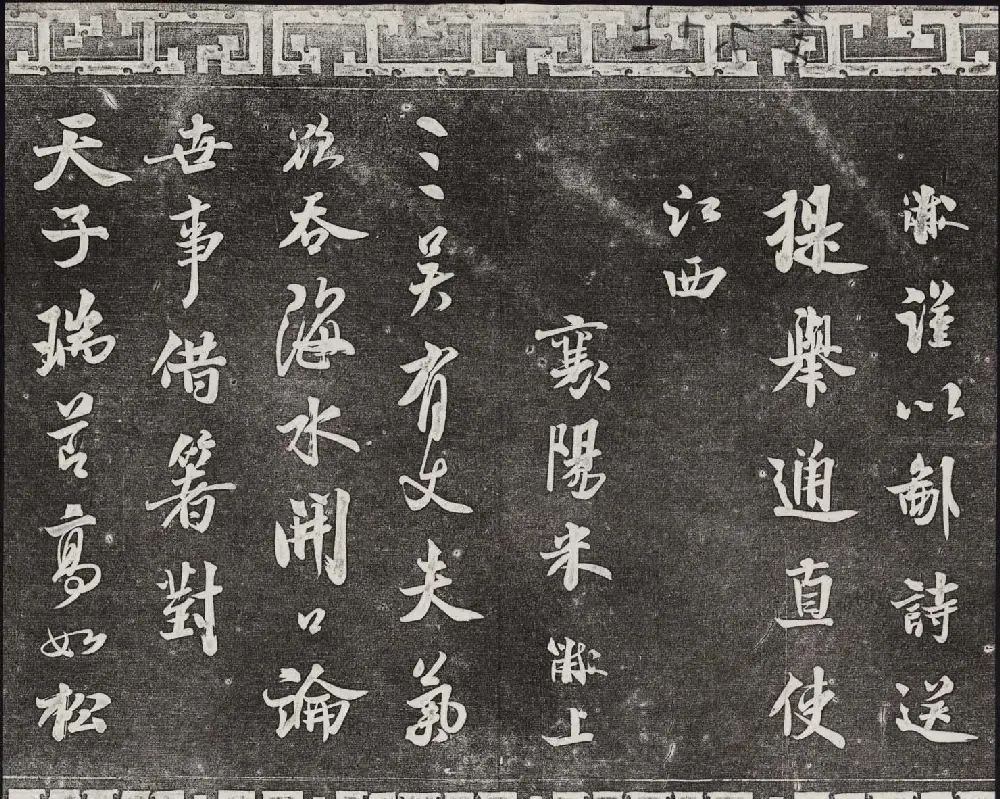 黻謹以鄙詩送
提舉通直使
江西
襄陽米黻上
三吴有丈夫氣
欲吞海水開口論
世事借箸對
天子瑞高如松